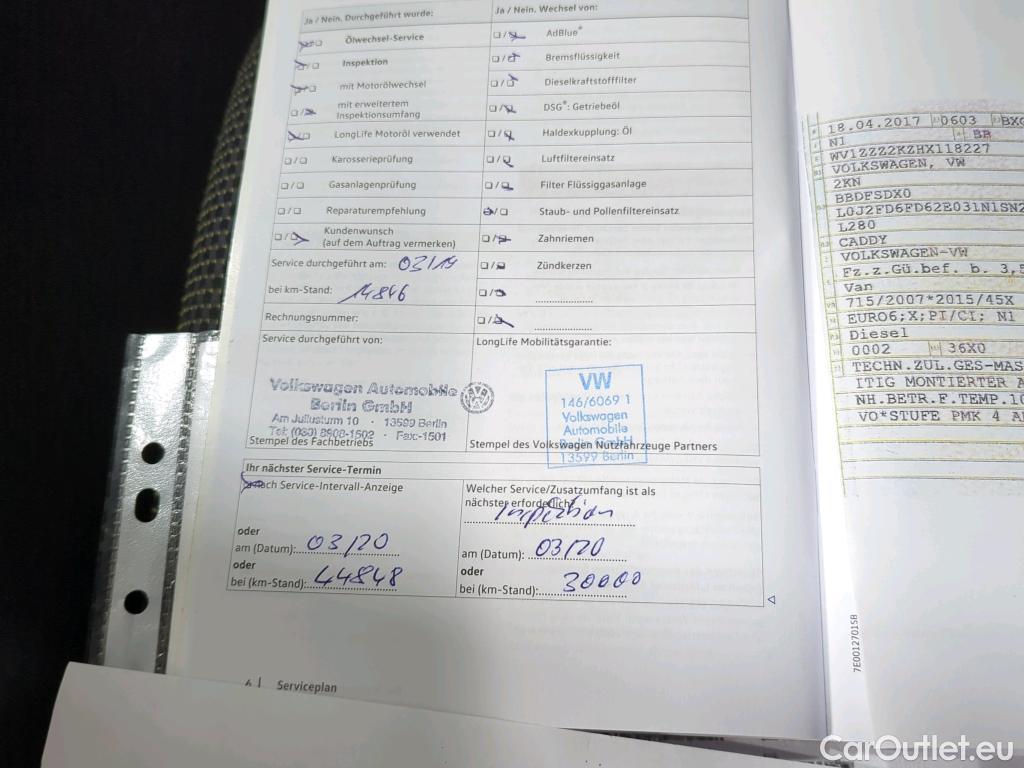 Ja / Nein. Durchgeführt wurde:
Ölwechsel-Service
Inspektion
mit Motorölwechsel
mit erweitertem
Inspektionsumfang
LongLife Motoröl verwendet
Karosserieprüfung
Gasanlagenprüfung
Reparaturempfehlung
Kundenwunsch
(auf dem Auftrag vermerken)
Service durchgeführt am: 03/19
bei km-Stand: 14846
Rechnungsnummer:
Service durchgeführt von:
Volkswagen Automobile
Berlin GmbH
Am Juliusturm 10 · 13599 Berlin
Tel: (030) 8908-1502 · Fax:-1501
Stempel des Fachbetriebs
Ja / Nein. Wechsel von:
AdBlue®
Bremsflüssigkeit
Dieselkraftstofffilter
DSG®: Getriebeöl
Haldexkupplung: Öl
Luftfiltereinsatz
Filter Flüssiggasanlage
Staub- und Pollenfiltereinsatz
Zahnriemen
Zündkerzen
LongLife Mobilitätsgarantie:
VW
146/6069 1
Volkswagen
Automobile
Berlin GmbH
13599 Berlin
Stempel des Volkswagen Nutzfahrzeuge Partners
Ihr nächster Service-Termin
nach Service-Intervall-Anzeige
oder
am (Datum): 03/20
oder
bei (km-Stand): 44848
Welcher Service/Zusatzumfang ist als
nächster erforderlich?
Inspektion
am (Datum): 03/20
oder
bei (km-Stand): 30000
6 | Serviceplan
18.04.2017 0603 BX
N1 BB
WV1ZZZ2KZHX118227
VOLKSWAGEN, VW
2KN
BBDFSDX0
L0J2FD6FD62E031N1SN2
L280
CADDY
VOLKSWAGEN-VW
Fz.z.Gü.bef. b. 3,5
Van
715/2007*2015/45X
EURO6;X;PI/CI; N1
Diesel
0002 36X0
TECHN.ZUL.GES-MAS
ITIG MONTIERTER A
NH.BETR.F.TEMP.10
VO*STUFE PMK 4 A
7E0012701SB
CarOutlet.eu